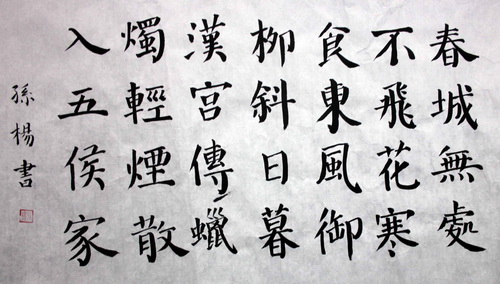 春城無處
不飛花寒
食東風御
柳斜日暮
漢宮傳蠟
燭輕煙散
入五侯家
孫楊書